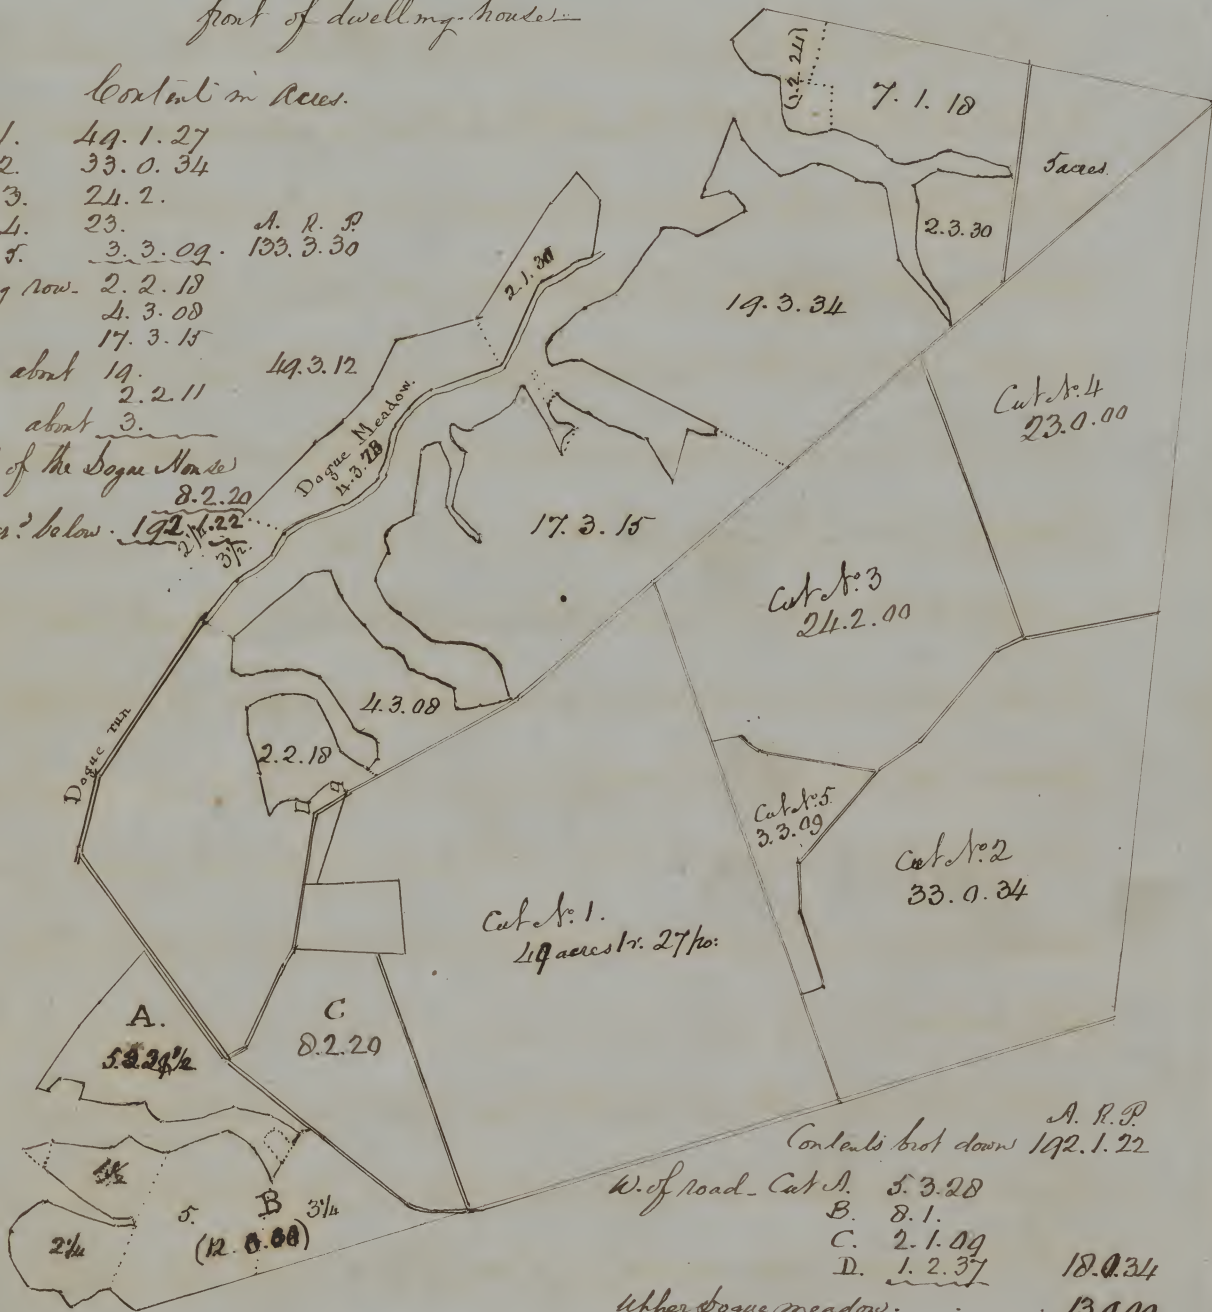 front of dwelling-house
Content in Acres.
1. 49.1.27
2. 33.0.34
3. 24.2.
4. 23. A. R. P.
5. 3.3.09. 133.3.30
row. 2.2.18
4.3.08
17.3.15
about 19. 49.3.12
2.2.11
about 3.
of the Dogue House
8.2.20
below. 192.1.22
2 1/2
3 1/2
(1.2.24)
7.1.18
5 acres.
2.3.30
2.1.30
19.3.34
Dogue Meadow.
4.3.28
17.3.15
Cut No. 4
23.0.00
Cut No. 3
24.2.00
4.3.08
2.2.18
Dogue run
Cut No. 5
3.3.09
Cut No. 2
33.0.34
Cut No. 1.
49 acres 1r. 27 po:
A.
C
8.2.20
5.
B
3 1/4
2 1/4
(12.0.00)
A. R. P.
Contents brot down 192.1.22
W. of road - Cut A. 5.3.28
B. 8.1.
C. 2.1.09
D. 1.2.37 18.0.34
Upper Dogue meadow. 13.0.00